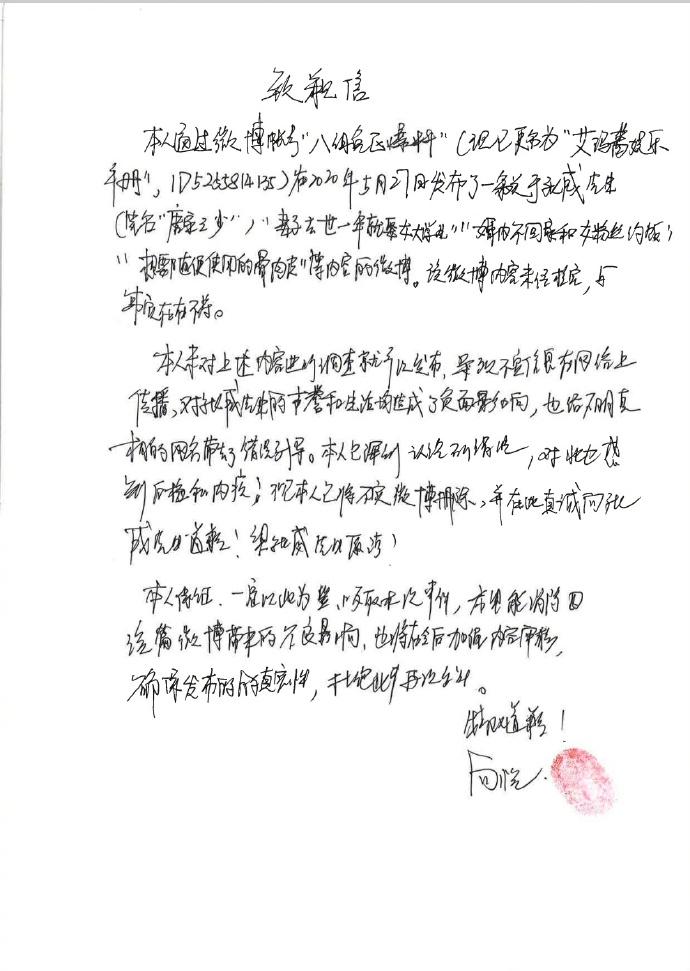 致歉信
本人通过微博帐号"八组兔区爆料"(现已更名为"艾玛酱娱乐
手册",ID5255814135)在2020年5月27日发布了一条关于张威先生
(笔名"唐家三少")"妻子去世一年就娶女大学生""婚内不回家和女粉丝约饭"
"随便使用的骨肉皮"等内容的微博。该微博内容未经核实,与
事实存在不符。
本人未对上述内容进行调查就予以发布,导致不实信息在网络上
传播,对张威先生的声誉和生活均造成了负面影响,也给不明真
相的网友带去了错误引导。本人已深刻认识到错误,对此感
到后悔和内疚;现本人已将不实微博删除,并在此真诚向张
威先生道歉!望张威先生原谅!
本人保证,一定以此为鉴,吸取本次事件,尽可能消除因
这篇微博带来的不良影响,也将在今后加强内容审核,
确保发布内容的真实性,杜绝此事再次发生。
特此道歉!